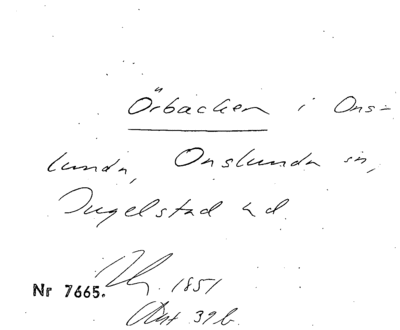 Örbacken i Ons-
lunda, Onslunda sn,
Ingelstad hd.
1851
Nr 7665.
Akt 39b.